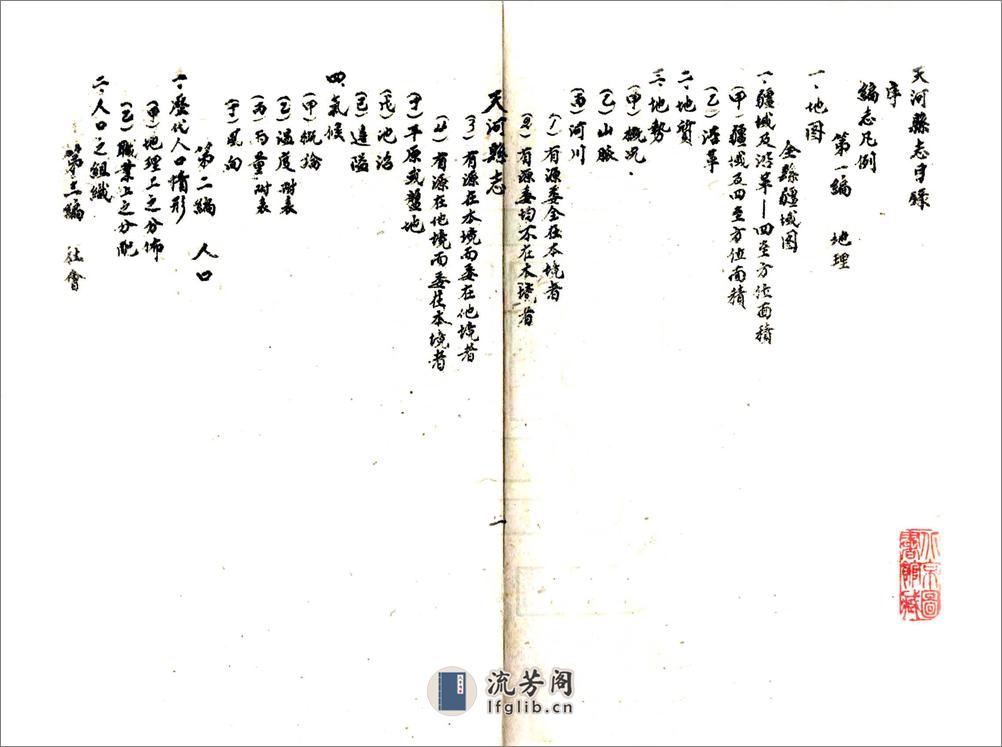 天河縣志目錄
序
編志凡例
第一編　地理
一、地图
全縣疆域图
一、疆域及沿革—四至方位面積
(甲)疆域及四至方位面積
(乙)沿革
二、地質
三、地勢
(甲)概况
(乙)山脈
(丙)河川
(1)有源委全在本境者
(2)有源委均不在本境者
天河縣志
一
(3)有源在本境而委在他境者
(4)有源在他境而委在本境者
(丁)平原或盤地
(戊)池沼
(己)邊隘
四、氣候
(甲)概論
(乙)温度附表
(丙)雨量附表
(丁)風向
第二編　人口
一、歷代人口情形
(甲)地理上之分佈
(乙)職業上之分配
二、人口之組織
第三編　社會
北京圖
書館藏
流芳阁
lfglib.cn